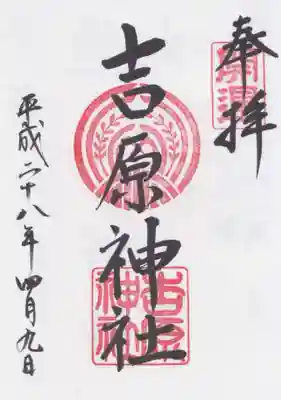 奉拝
吉原神社
平成二十八年四月九日
吉原神社